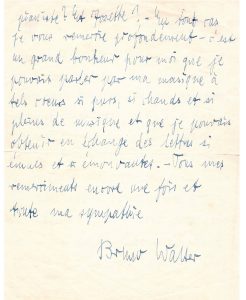 quantité? Et qualité? – En tout cas
je vous remercie profondément – c'est
un grand bonheur pour moi que je
pouvais parler par ma musique à
tels cœurs si purs, si chauds et si
pleins de musique et que je pouvais
obtenir en échange des lettres si
émues et si émouvantes. – Tous mes
remerciments encore une fois et
toute ma sympathie
Bruno Walter